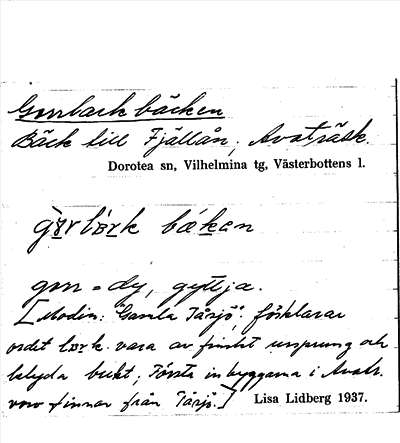 Gorrlaxkbäcken
Bäck till Fjällån, Avaträsk.
Dorotea sn, Vilhelmina tg, Västerbottens l.
bækan
gorr = dy, gyttja.
[Modin: "Gamla Tåsjö": förklarar
ordet vara av finskt ursprung och
betyda bukt; Första inbyggarna i Avatr.
voro finnar från Tåsjö.] Lisa Lidberg 1937.